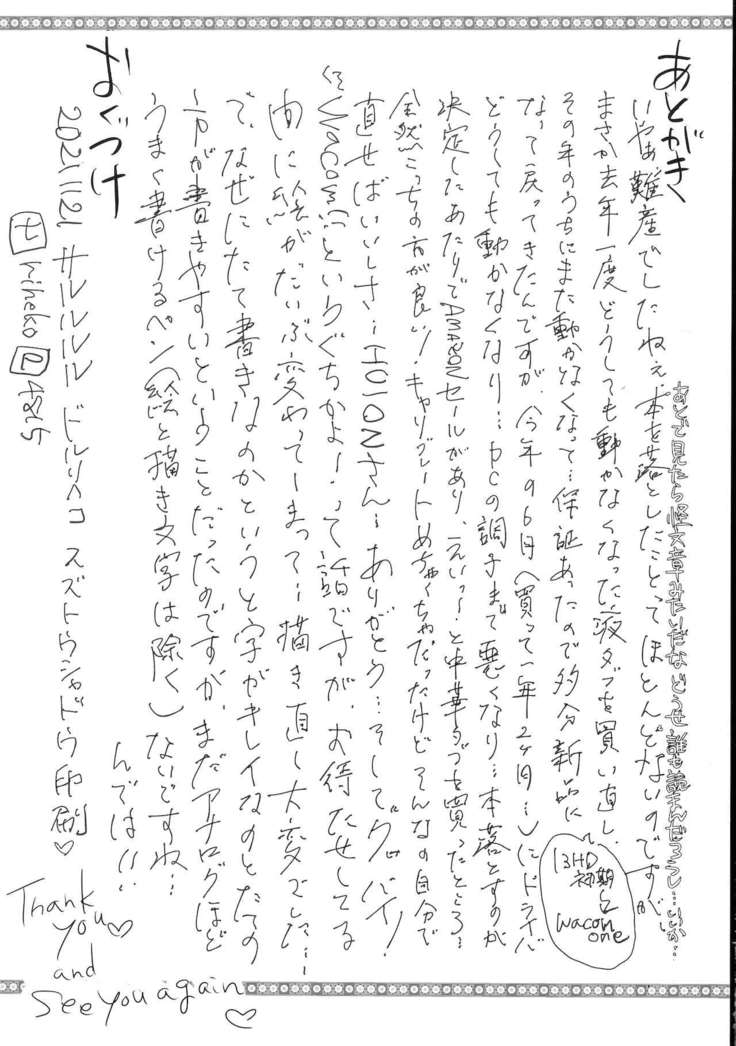 あとがき
あとで見たら怪文章みたいだな どうせ誰も読まんだろうし…いいか…
いやぁ難産でしたねぇ、本を落としたことってほとんどないのですが
まさか去年一度どうしても動かなくなった液タブを買い直し、
13HD
初期 と
wacom
one
その年のうちにまた動かなくなって…保証あったので多分新品に
なって戻ってきたんですが、今年の6月(買って一年2ヶ月…)にドライバ
どうしても動かなくなり…PCの調子まで悪くなり…本落とすのが
決定したあたりでAmazonセールがあり、えいっ!と中華タブを買ったところ…
全然こっちの方が良い! キャリブレートめちゃくちゃだったけど そんなの自分で
直せばいいしさ… HUIONさん… ありがとう… そしてグッバイ!
くそWacom!!というぐちかよー!って話ですが、お待たせしてる
間に絵がだいぶ変わってしまって… 描き直し大変でした…
で、なぜにたて書きなのかというと字がキレイなのとたての
方が書きやすいということだったのですが、まだアナログほど
うまく書けるペン(絵と描き文字は除く)ないですね…
んでは!!
おくづけ
2021.11.21 サルルルル ドルリヘコ スズトウシャドウ印刷♡
Thank
you♡
and
see you again
♡